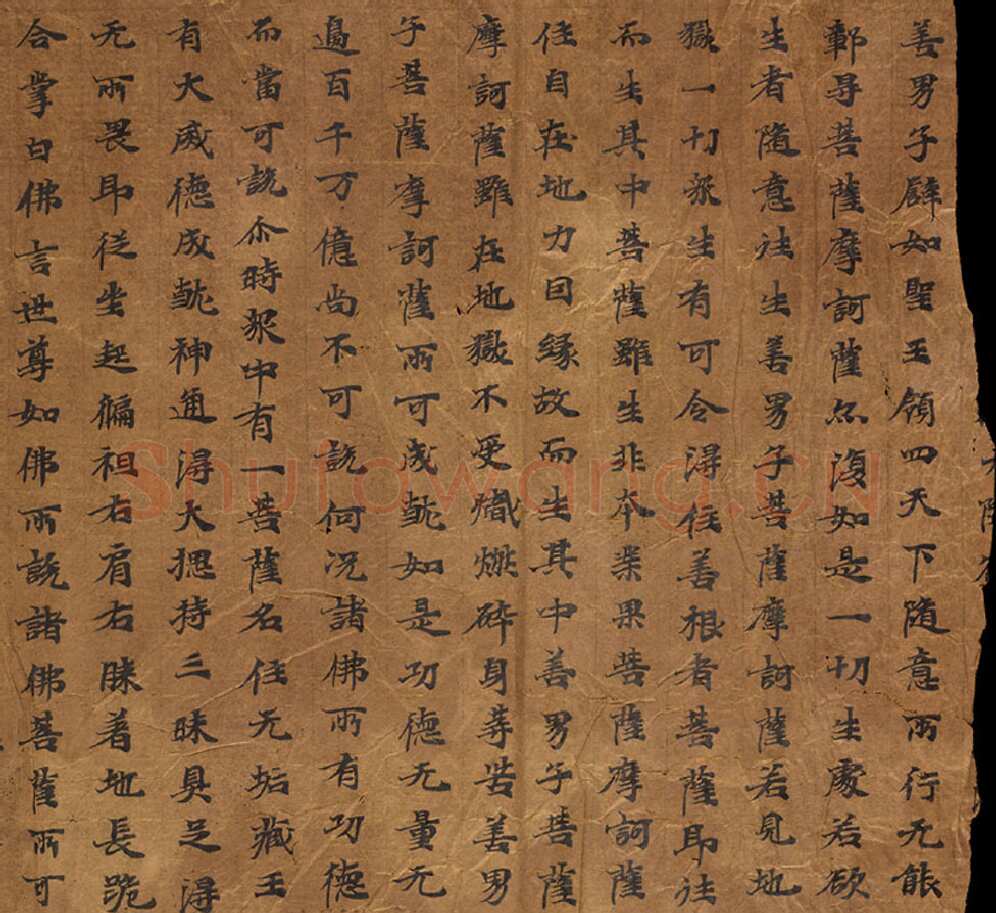 善男子辟如聖王領四天下随意而行无能
鄣㝵菩薩摩訶薩亦復如是一切生處若欲
生者随意往生善男子菩薩摩訶薩若見地
獄一切衆生有可令得住善根者菩薩即往
而生其中菩薩雖生非本業果菩薩摩訶薩
住自在地力因緣故而生其中善男子菩薩
摩訶薩雖在地獄不受熾燃碎身等苦善男
子菩薩摩訶薩所可成就如是功德无量无
邊百千万億尚不可說何况諸佛所有功德
而當可說尒時衆中有一菩薩名住无垢藏王
有大威德成就神通得大揔持三昧具足得
无所畏即從坐起徧袒右肩右膝著地長跪
合掌白佛言世尊如佛所說諸佛菩薩所可
shufawang.cn